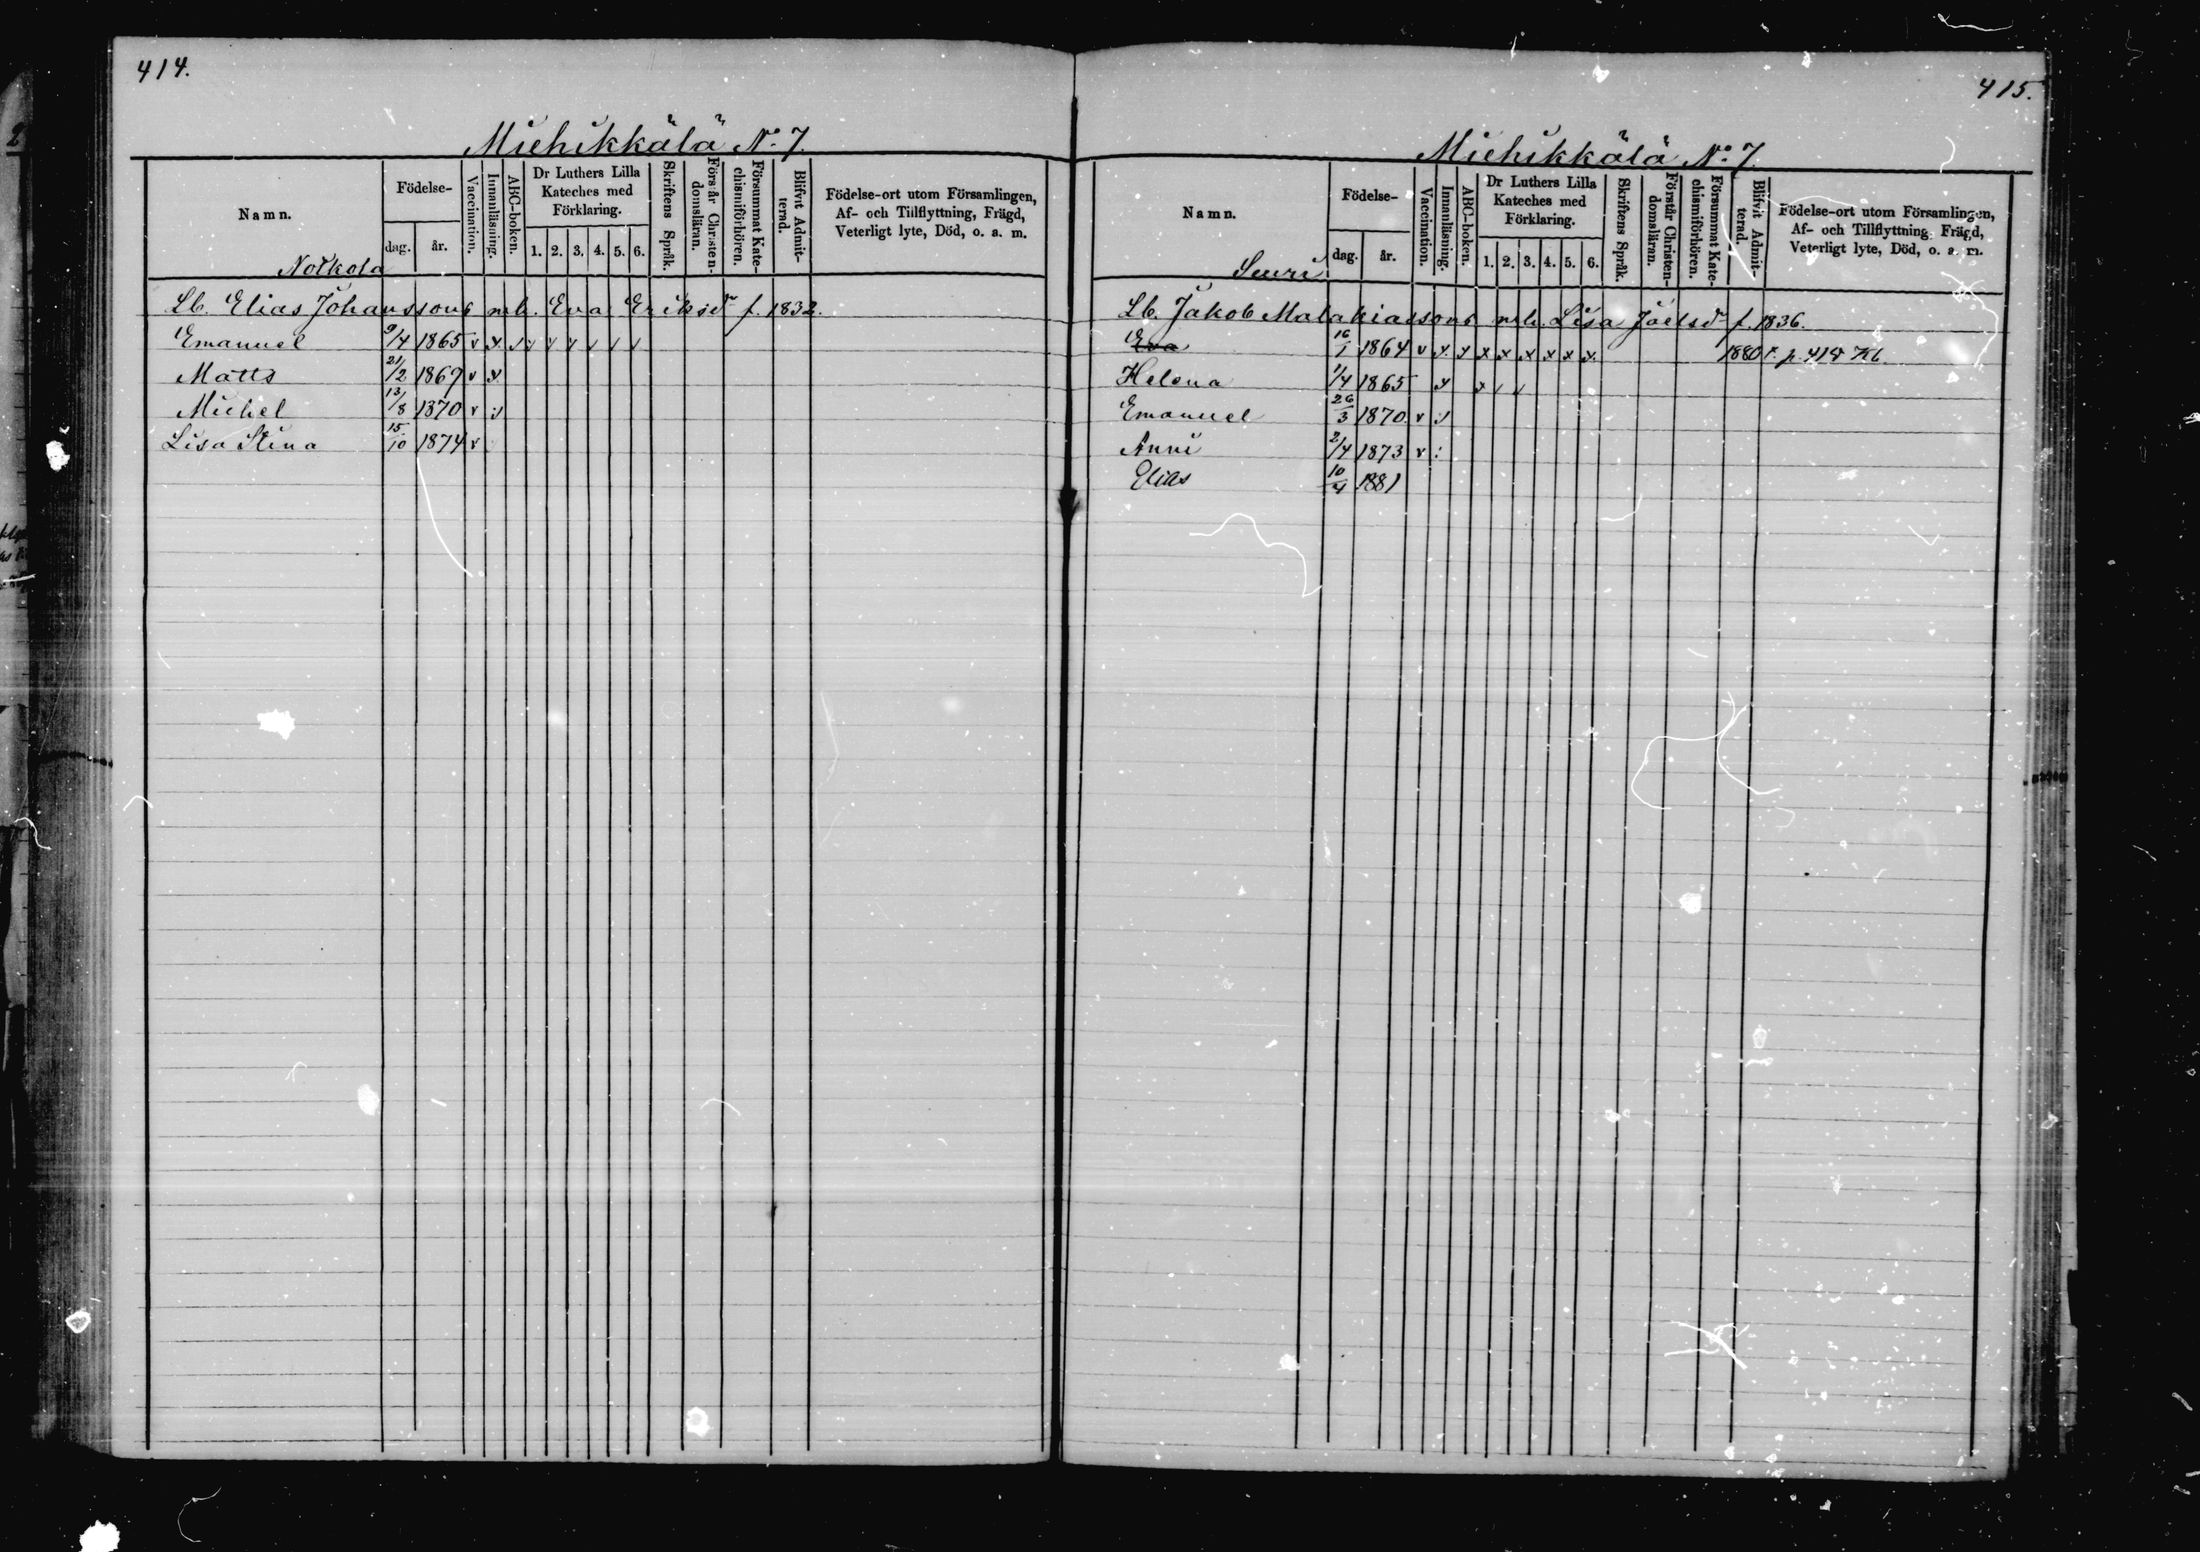 414.
Miehikkälä No 7.
Namn.
Födelse-
dag. år.
Vaccination.
Innanläsning.
ABC-boken.
Dr Luthers Lilla Kateches med Förklaring.
1. 2. 3. 4. 5. 6.
Skriftens Språk.
Förstår Christen-domsläran.
Försummat Kate-chismiförhören.
Blifvit Admit-terad.
Födelse-ort utom Församlingen,
Af- och Tillflyttning, Frägd,
Veterligt lyte, Död, o. a. m.
Notkola
Lb. Elias Johanssons enk. Eva Eriksdr f. 1832.
Emanuel 9/4 1865 v x v v v v v v v
Matts 21/2 1867 v x
Michel 13/8 1870 v
Lisa Stina 15/10 1874 v
415.
Miehikkälä No 7.
Namn.
Födelse-
dag. år.
Vaccination.
Innanläsning.
ABC-boken.
Dr Luthers Lilla Kateches med Förklaring.
1. 2. 3. 4. 5. 6.
Skriftens Språk.
Förstår Christen-domsläran.
Försummat Kate-chismiförhören.
Blifvit Admit-terad.
Födelse-ort utom Församlingen,
Af- och Tillflyttning Frägd,
Veterligt lyte, Död, o. a. m.
Suuri
Lb. Jakob Malakiassons enk. Lisa Joelsdr f. 1836.
Eva 16/1 1864 v x x x x x x x x 1880 p. 418 Kb.
Helena 1/4 1865 x x v v
Emanuel 26/3 1870. v
Anni 2/4 1873 v
Elias 10/4 1881